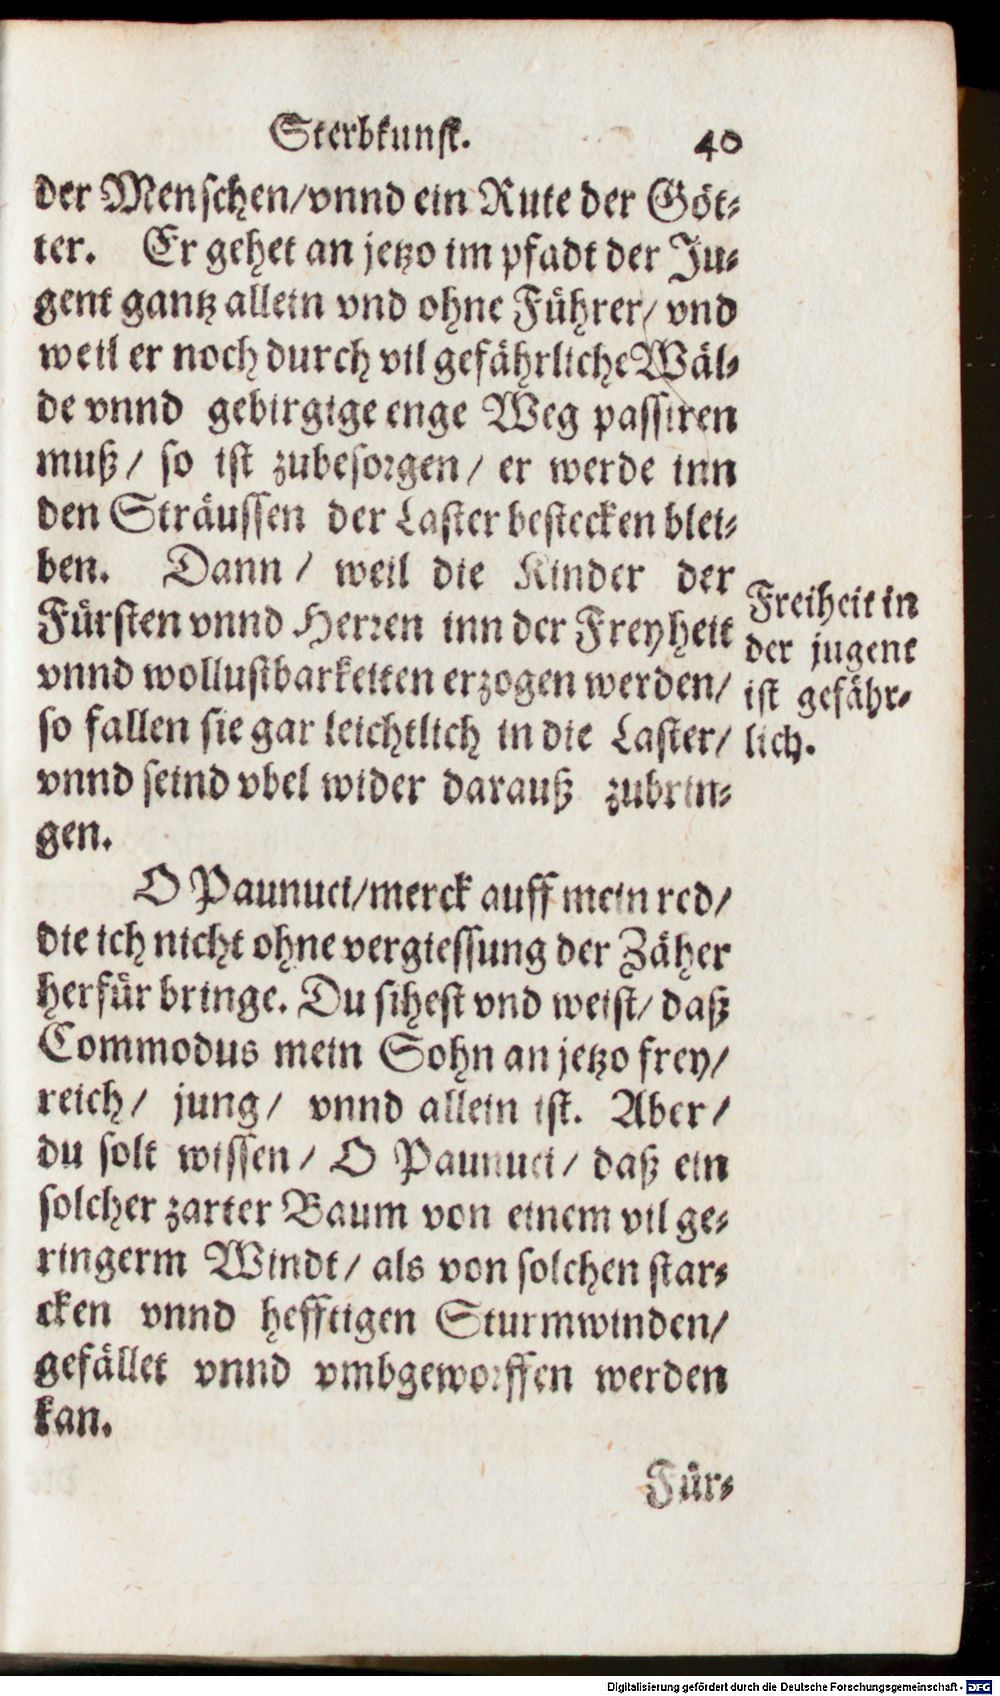 Sterbkunst. 40
der Menschen/vnnd ein Rute der Göt-
ter. Er gehet an jetzo im pfadt der Ju-
gent gantz allein vnd ohne Führer/ vnd
weil er noch durch vil gefährliche Wäl-
de vnnd gebirgige enge Weg passiren
muß/ so ist zubesorgen/ er werde inn
den Sträussen der Laster bestecken blei-
ben. Dann/ weil die Kinder der
Fürsten vnnd Herren inn der Freyheit
vnnd wollustbarkeiten erzogen werden/
so fallen sie gar leichtlich in die Laster/
vnnd seind vbel wider darauß zubrin-
gen.
Freiheit in
der jugent
ist gefähr-
lich.
O Paunuci/merck auff mein red/
die ich nicht ohne vergiessung der Zäher
herfür bringe. Du sihest vnd weist/ daß
Commodus mein Sohn an jetzo frey/
reich/ jung/ vnnd allein ist. Aber/
du solt wissen/ O Paunuci/ daß ein
solcher zarter Baum von einem vil ge-
ringerm Windt/ als von solchen star-
cken vnnd hefftigen Sturmwinden/
gefället vnnd vmbgeworffen werden
kan.
Für-
Digitalisierung gefördert durch die Deutsche Forschungsgemeinschaft - DFG